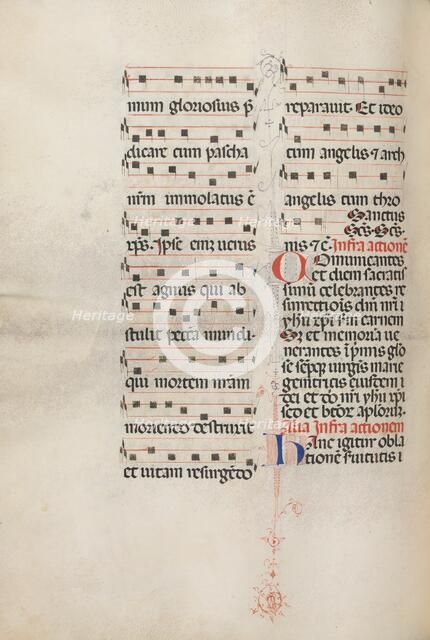 mum gloriosius p̄
dicare cum pascha
nr̄m immolatus ē
xp̄s. Ipse enī uerus
est agnus qui ab
stulit pctā mundi.
qui mortem nr̄am
moriendo destruxit
et uitam resurgēdo
reparauit. Et ideo
cum angelis ⁊ arch
angelis cum thro
Sanctus
Scs. Scs.
nis ⁊ c̄. Infra actionē
Communicantes
et diem sacratis
simū celebrantes re
surrectōis dn̄i nr̄i
yhū xp̄i scdm carnem
Sz et memoriā ue
nerantes ip̄mis glo
se semp̄ uirgis marie
genitricis eiusdem
dei et dn̄i nr̄i yhū xp̄i
sed et btōꝝ aploꝝ.
Alia infra actionem
Hanc igitur obla
tionē seruitutis
Heritage
Heritage
Heritage
Heritage
Heritage
Heritage
Heritage